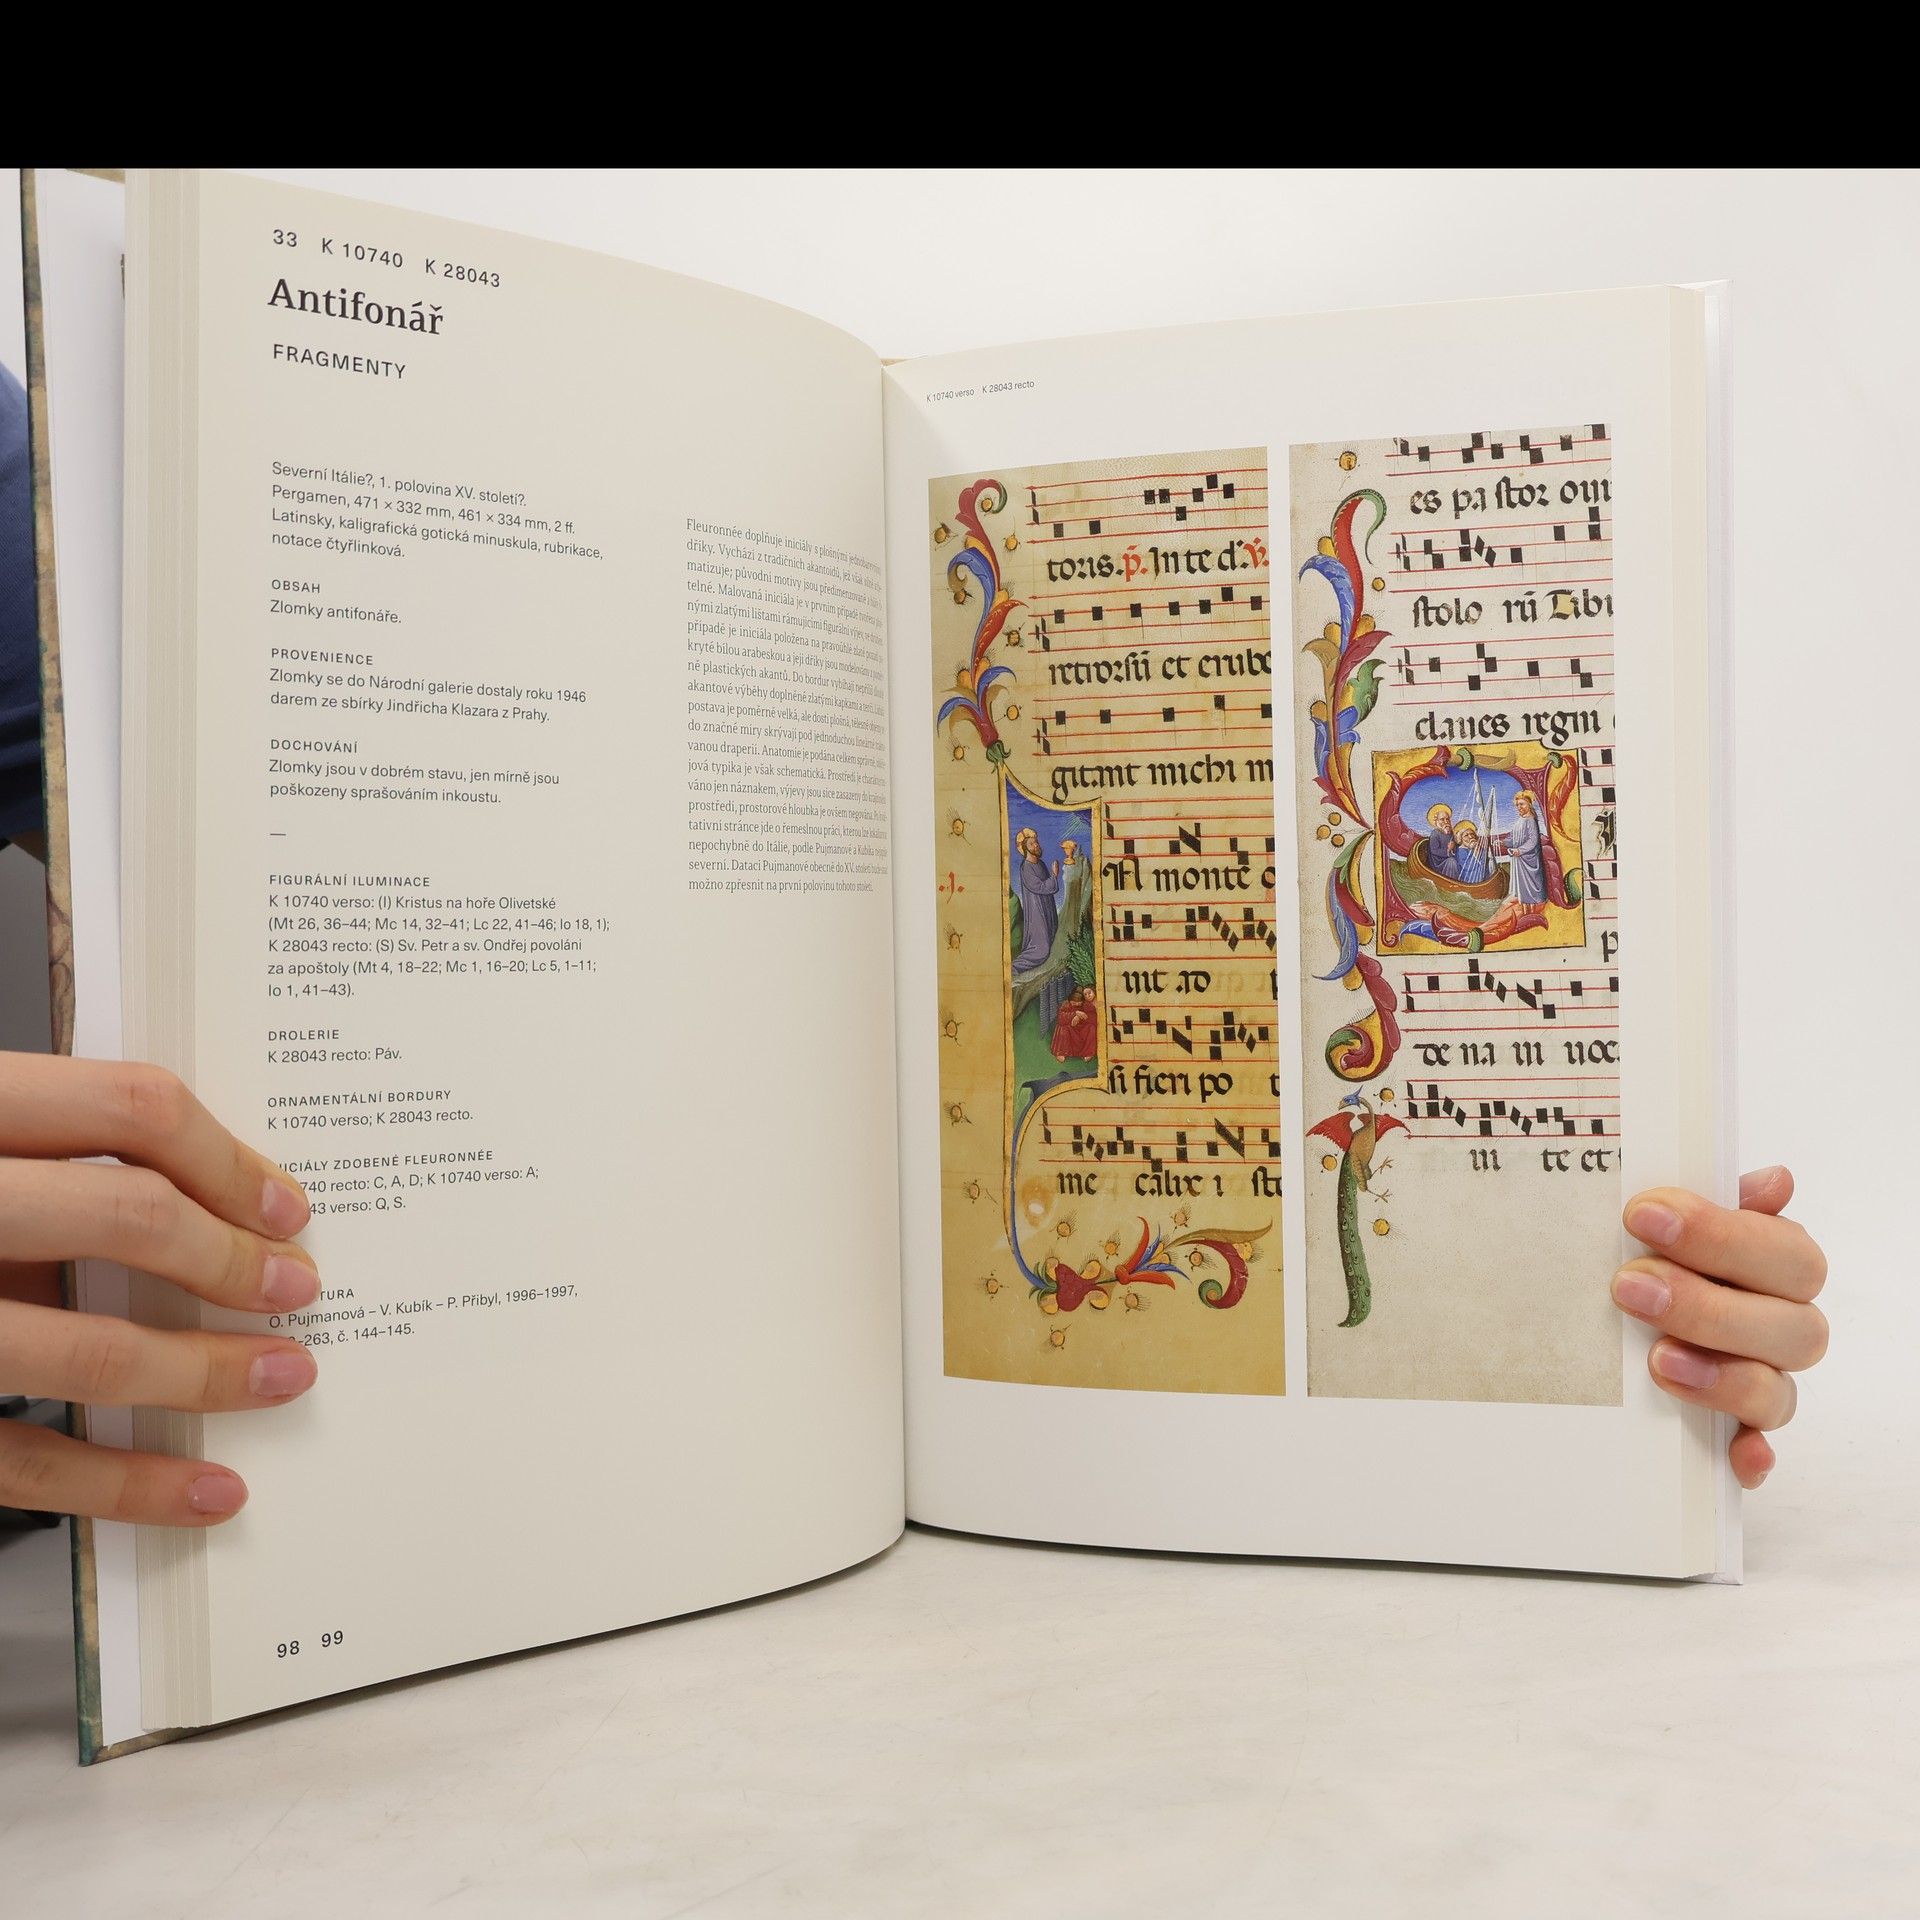 33 K 10740 K 28043
Antifonář
FRAGMENTY
Severní Itálie?, 1. polovina XV. století?.
Pergamen, 471 × 332 mm, 461 × 334 mm, 2 ff.
Latinsky, kaligrafická gotická minuskula, rubrikace,
notace čtyřlinková.
OBSAH
Zlomky antifonáře.
PROVENIENCE
Zlomky se do Národní galerie dostaly roku 1946
darem ze sbírky Jindřicha Klazara z Prahy.
DOCHOVÁNÍ
Zlomky jsou v dobrém stavu, jen mírně jsou
poškozeny sprašováním inkoustu.
—
FIGURÁLNÍ ILUMINACE
K 10740 verso: (I) Kristus na hoře Olivetské
(Mt 26, 36–44; Mc 14, 32–41; Lc 22, 41–46; Io 18, 1);
K 28043 recto: (S) Sv. Petr a sv. Ondřej povoláni
za apoštoly (Mt 4, 18–22; Mc 1, 16–20; Lc 5, 1–11;
Io 1, 41–43).
DROLERIE
K 28043 recto: Páv.
ORNAMENTÁLNÍ BORDURY
K 10740 verso; K 28043 recto.
ICIÁLY ZDOBENÉ FLEURONNÉE
740 recto: C, A, D; K 10740 verso: A;
43 verso: Q, S.
TURA
O. Pujmanová – V. Kubík – P. Přibyl, 1996–1997,
-263, č. 144–145.
98 99
Fleuronnée doplňuje iniciály s plošnými
dříky. Vychází z tradičních akantoidů, jež však
matizuje; původní motivy jsou předimenzované
telné. Malovaná iniciála je v prvním případě tvořena
nými zlatými lištami rámujícími figurální výjev,
případě je iniciála položena na pravoúhlé zlaté
kryté bílou arabeskou a její dříky jsou modelovány
né plastických akantů. Do bordur vybíhají
akantové výběhy doplněné zlatými kapkami a
postava je poměrně velká, ale dosti plošná, tělesné objemy
do značné míry skrývají pod jednoduchou lineárně
vanou draperií. Anatomie je podána celkem správně,
jová typika je však schematická. Prostředí je
váno jen náznakem, výjevy jsou sice zasazeny do
prostředí, prostorové hloubka je ovšem negována.
tativní stránce jde o řemeslnou práci, kterou lze
nepochybně do Itálie, podle Pujmanové a Kubíka
severní. Dataci Pujmanové obecně do XV. století bude
možno zpřesnit na první polovinu tohoto století.
K 10740 verso K 28043 recto
toris. p. In te d. v.
retrorsū et erube
gitant michi m
N monte o
uit ad p
si fieri po t
me calix i ste
es pastor oui
stolo rū Tibi
claues regni
p
de na ui uoc
ui te et